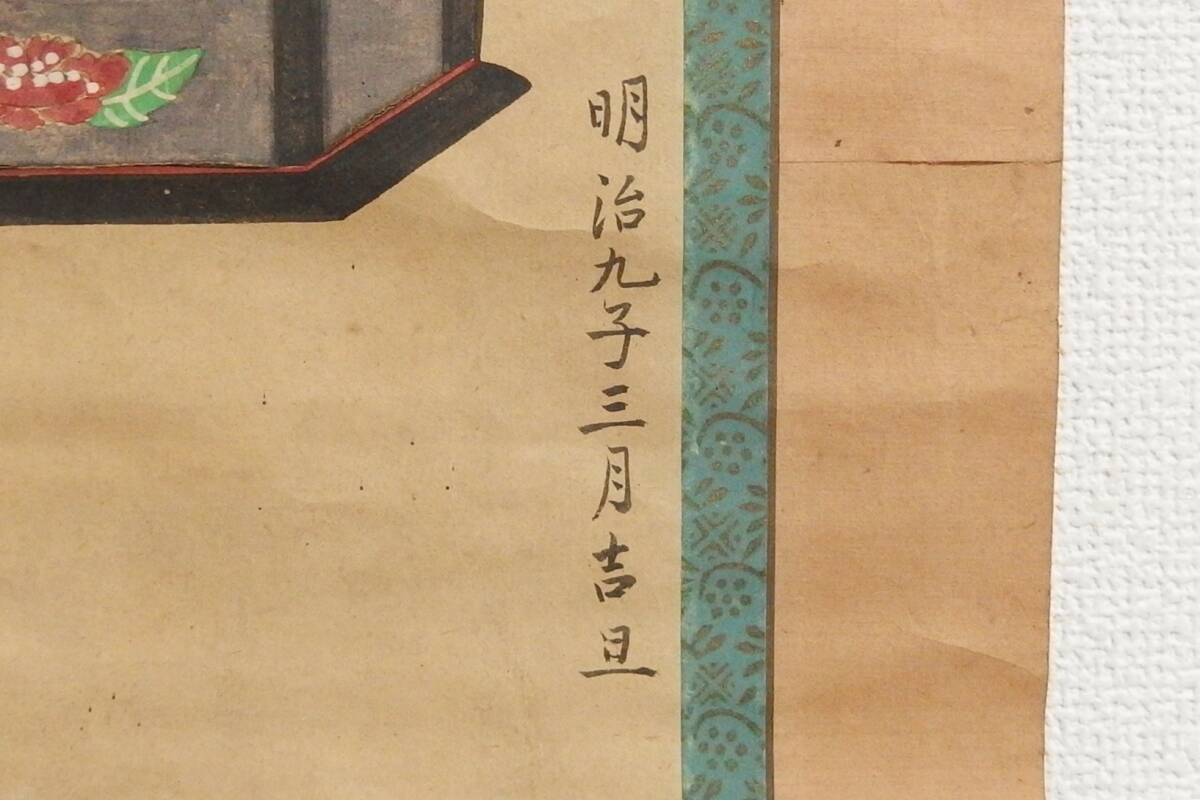 明治九子三月吉旦